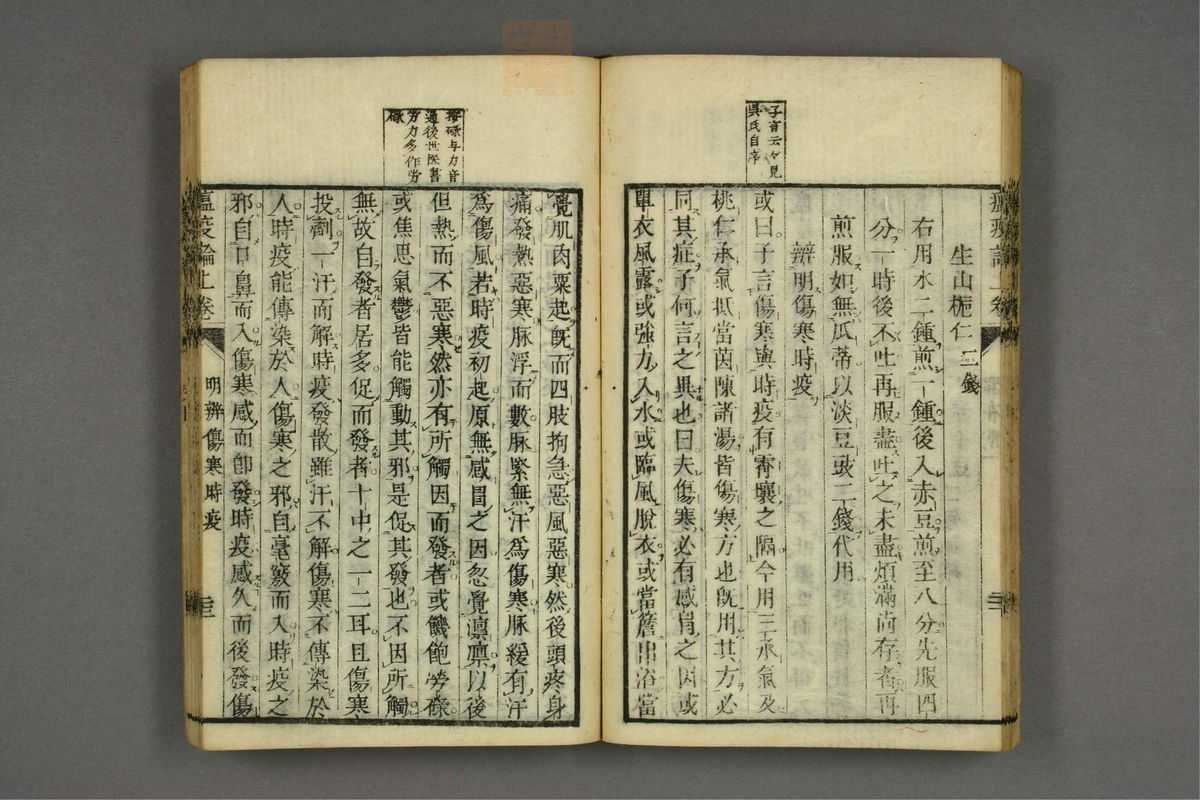 瘟疫論上卷
生山梔仁二錢
右用水二鍾煎一鍾後入赤豆煎至八分先服四
分一時後不吐再服盡吐之未盡煩滿尚存者再
煎服如無瓜蒂以淡豆豉二錢代用
辨明傷寒時疫
或曰子言傷寒與時疫有霄壤之隔今用三承氣及
桃仁承氣抵當茵陳諸湯皆傷寒方也既用其方必
同其症子何言之異也曰夫傷寒必有感冒之因或
單衣風露或強力入水或臨風脫衣或當簷出浴當
子言云々見
吳氏自序
覺肌肉粟起既而四肢拘急惡風惡寒然後頭疼身
痛發熱惡寒脉浮而數脉緊無汗爲傷寒脉緩有汗
爲傷風若時疫初起原無感冒之因忽覺凛凛以後
但熱而不惡寒然亦有所觸因而發者或饑飽勞碌
或焦思氣鬱皆能觸動其邪是促其發也不因所觸
無故自發者居多促而發者十中之一二耳且傷寒
投劑一汗而解時疫發散雖汗不解傷寒不傳染於
人時疫能傳染於人傷寒之邪自毫竅而入時疫之
邪自口鼻而入傷寒感而即發時疫感久而後發傷
按碌与力音
通後世医書
労力多作労
碌
瘟疫論上卷
明辨傷寒時疫